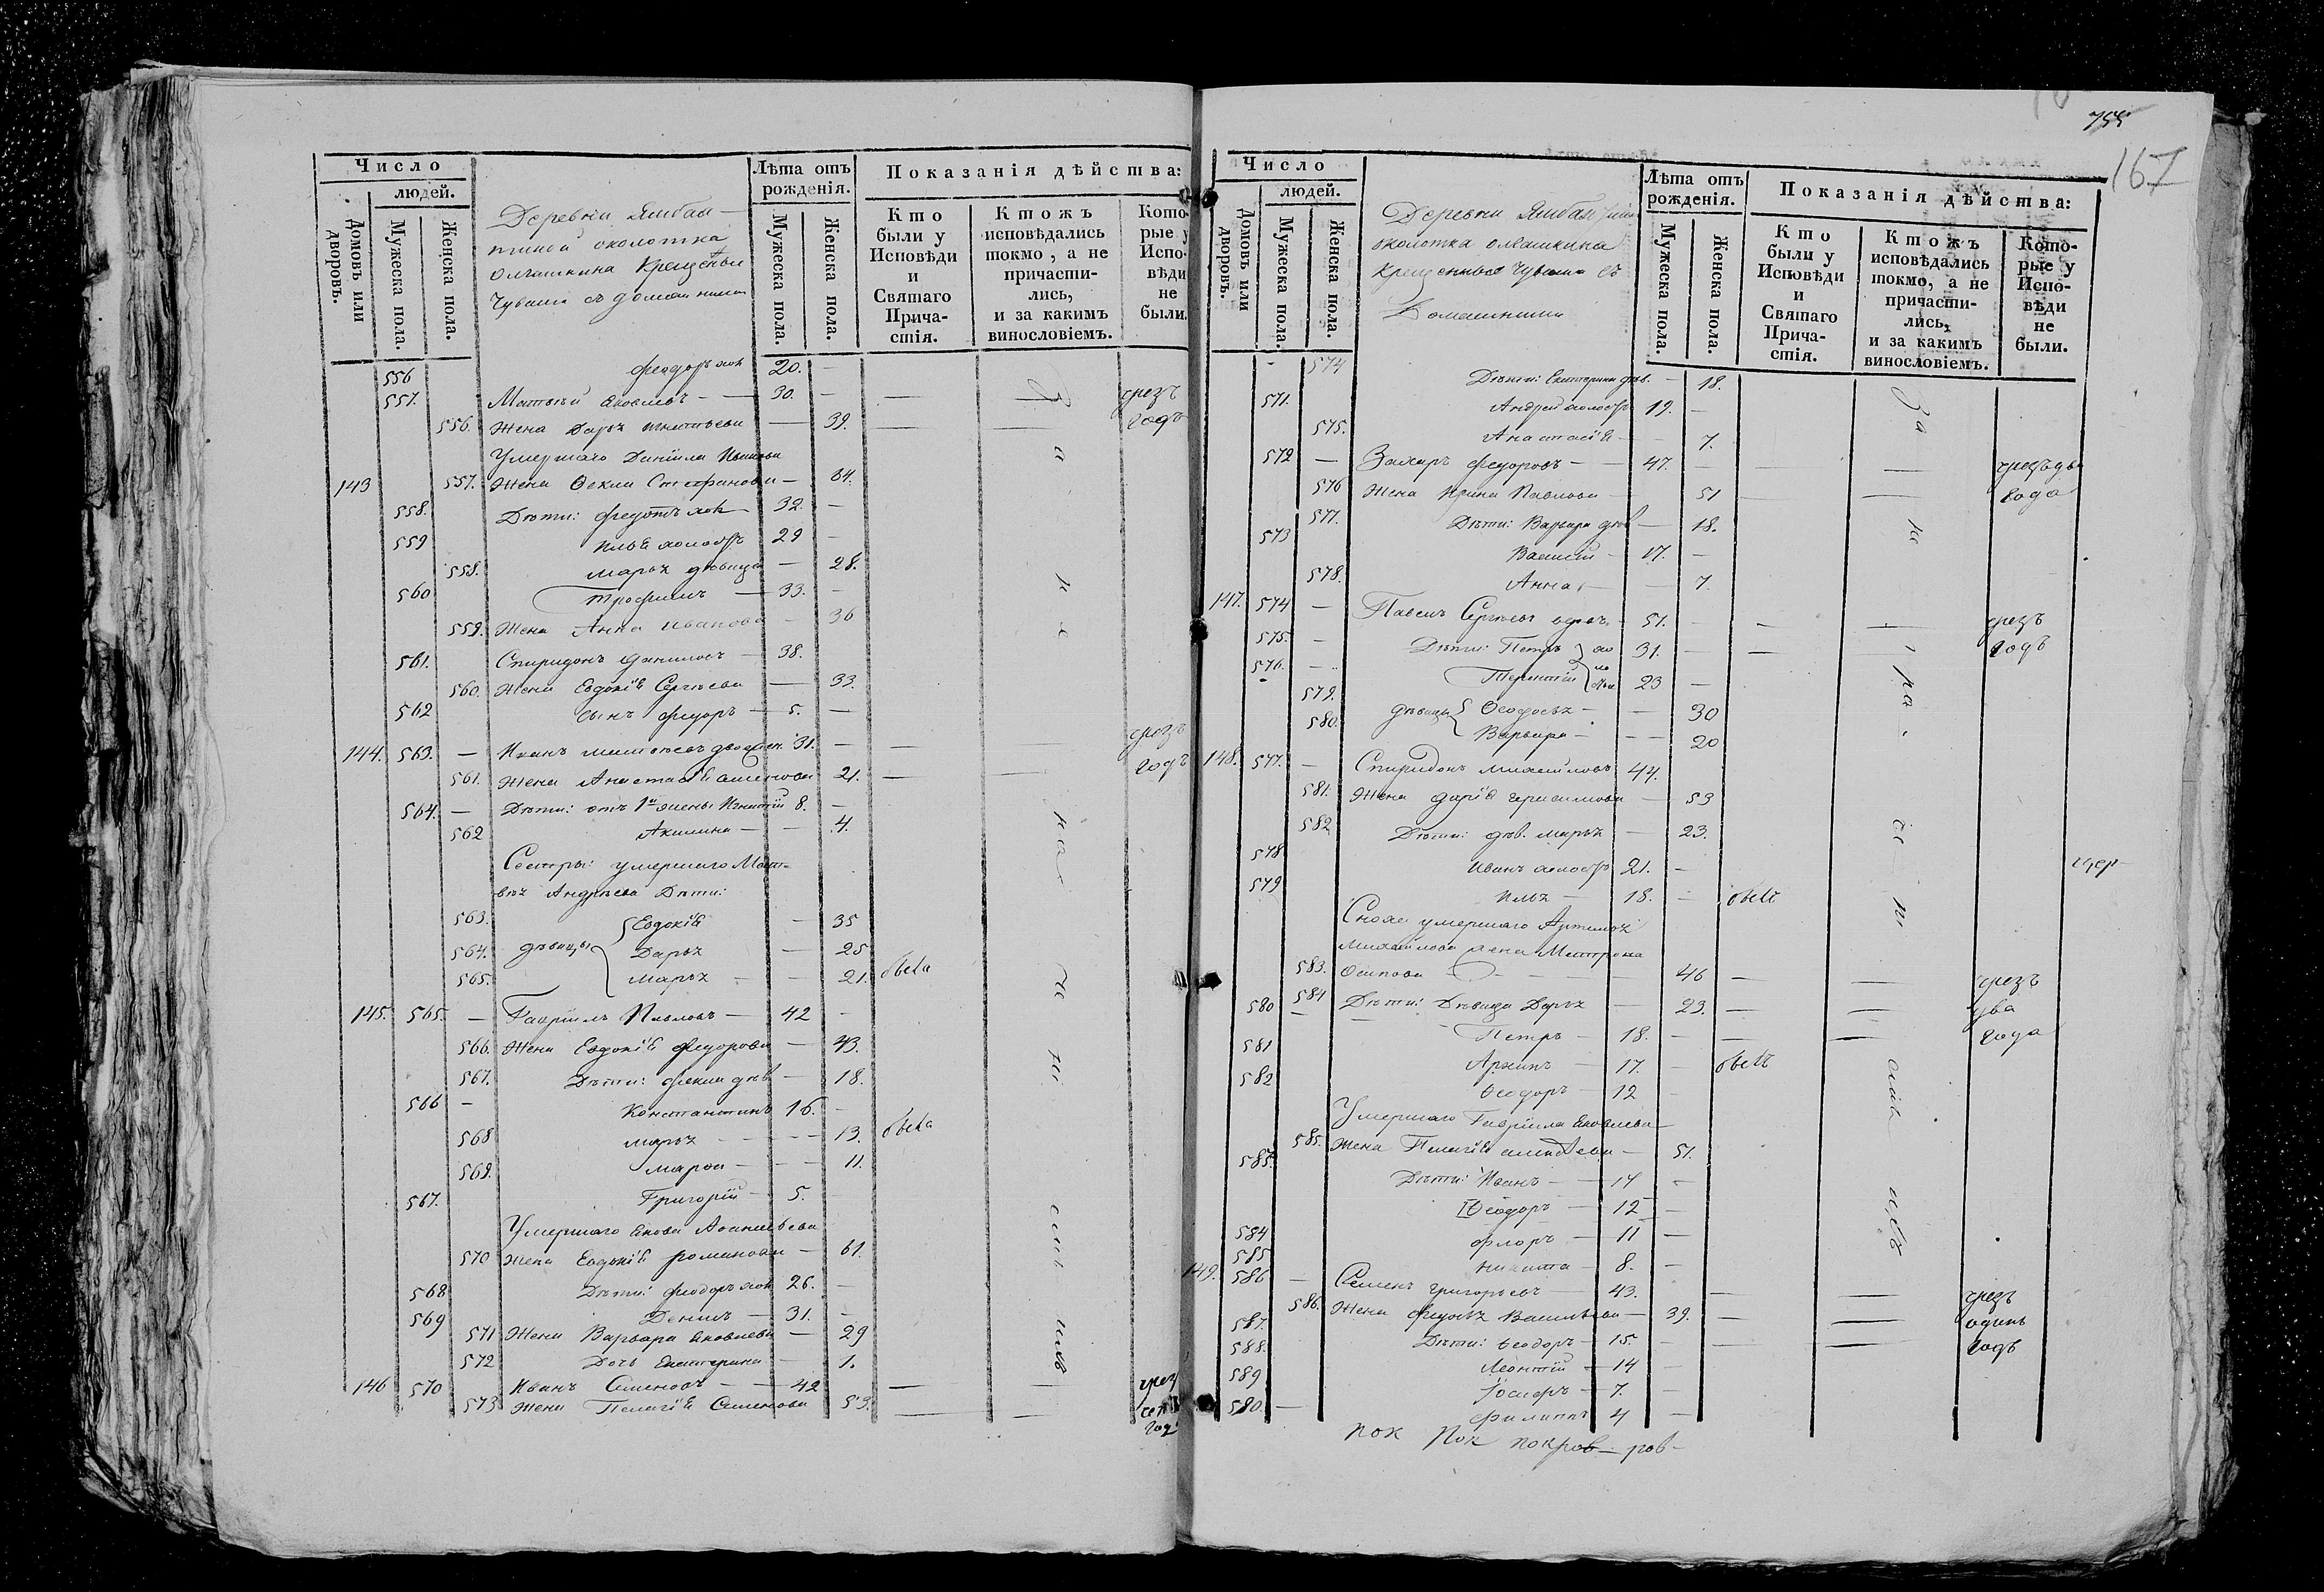 Число
людей.
Домовъ или дворовъ.
Мужеска пола.
Женска пола.
Деревни Ямбах-
тиной околотка
Крещеныи
Чуваши съ домашними
Лѣта отъ рожденія.
Мужеска пола.
Женска пола.
Показанія дѣйства:
Кто были у Исповѣди и Святаго Причастія.
Ктожъ исповѣдались токмо, а не причастились, и за какимъ винословіемъ.
Которые у Исповѣди не были.
556 Феодоръ хол 20. —
557. Матвѣй Яковлевъ — 30. — чрезъ
556. Жена Дарья Игнатьева — 39. годъ
Умершаго Даніила Иванова
143 557. Жена Ѳекла Стефанова — 84.
558. Дѣти: Федотъ хол 32. —
559 Илья холостъ 29 —
558. Марья дѣвица — 28.
560 Трофимъ — 33. —
559. Жена Анна Иванова — 36
561. Спиридонъ Даниловъ — 38.
560. Жена Евдокія Сергѣева — 33.
562 сынъ Федоръ — 5. —
144. 563. — Иванъ Матвѣевъ 31. — чрезъ
561. Жена Анастасія Семенова 21. — годъ
564. — Дѣти: отъ 1й жены Игнатій 8. —
562 Акилина — 4.
Сестры: умершаго Мат-
вѣя Андрѣева Дѣти:
563. Евдокія — 35
564. дѣвицы Дарья — 25
565. Марья — 21.
145. 565. — Гавріилъ Павловъ — 42 —
566. Жена Евдокія Федорова — 43.
567. Дѣти: Фекла дѣв — 18.
566 — Константинъ 16. —
568 Марья — 13.
569. Марфа — 11.
567. Григорій — 5.
Умершаго Якова
570 Жена Евдокія Романова — 61.
568 Дѣти: Феодоръ хол 26. —
569 Данилъ — 31. —
571 Жена Варвара Яковлева — 29
572 Дочь Екатерина — 1.
146 570 Иванъ Семеновъ — 42 — чрез
573 Жена Пелагія Семенова 53. — год
755
167
Число
людей.
Домовъ или дворовъ.
Мужеска пола.
Женска пола.
Деревни Ямбахтин
околотка
крещенные чуваши съ
Домашними
Лѣта отъ рожденія.
Мужеска пола.
Женска пола.
Показанія дѣйства:
Кто были у Исповѣди и Святаго Причастія.
Ктожъ исповѣдались токмо, а не причастились, и за какимъ винословіемъ.
Которые у Исповѣди не были.
574 Дѣти: Екатерина дѣв. — 18.
571. Андрей холостъ 19. —
575. Анастасія — 7.
572 — Захаръ Федоровъ — 47. — чрезъ два
576 Жена Ирина Павлова — 51 года
577. Дѣти: Варвара дѣв — 18.
573 Василій — 17. —
578. Анна — 7.
147. 574 — Павелъ Сергѣевъ вдовъ 51. — чрезъ
575. — Дѣти: Петръ хо 31. — годъ
576. — Терентій 23 —
579. дѣвицы Ѳеодосья — 30
580. Варвара — 20
148. 577. — Спиридонъ Михайловъ 44.
581. Жена Дарія Герасимова — 53
582 Дѣти: дѣв. Марья — 23.
578 Иванъ холостъ 21. —
579 Илья — 18. —
Сноха умершаго
Михайлова жена Матрона
583. Осипова — 46 — чрезъ
580 584 Дѣти: Дѣвица Дарья — 23. — два
581 Петръ — 18. — года
582 Архипъ — 17.
Ѳеодоръ — 12
Умершаго Гавріила Яковлева
585. Жена Пелагія — 51.
585. Дѣти: Иванъ — 14 —
Ѳеодоръ — 12 —
584 Флоръ — 11 —
585 Никита — 8. —
149. 586 — Семенъ Григорьевъ — 43. — чрезъ
586. Жена Федосья Васильева — 39. — одинъ
587. Дѣти: Ѳеодоръ — 15. — годъ
588. Леонтій — 14
589 7. —
580. — Филиппъ 4 —
пок пок покров ров